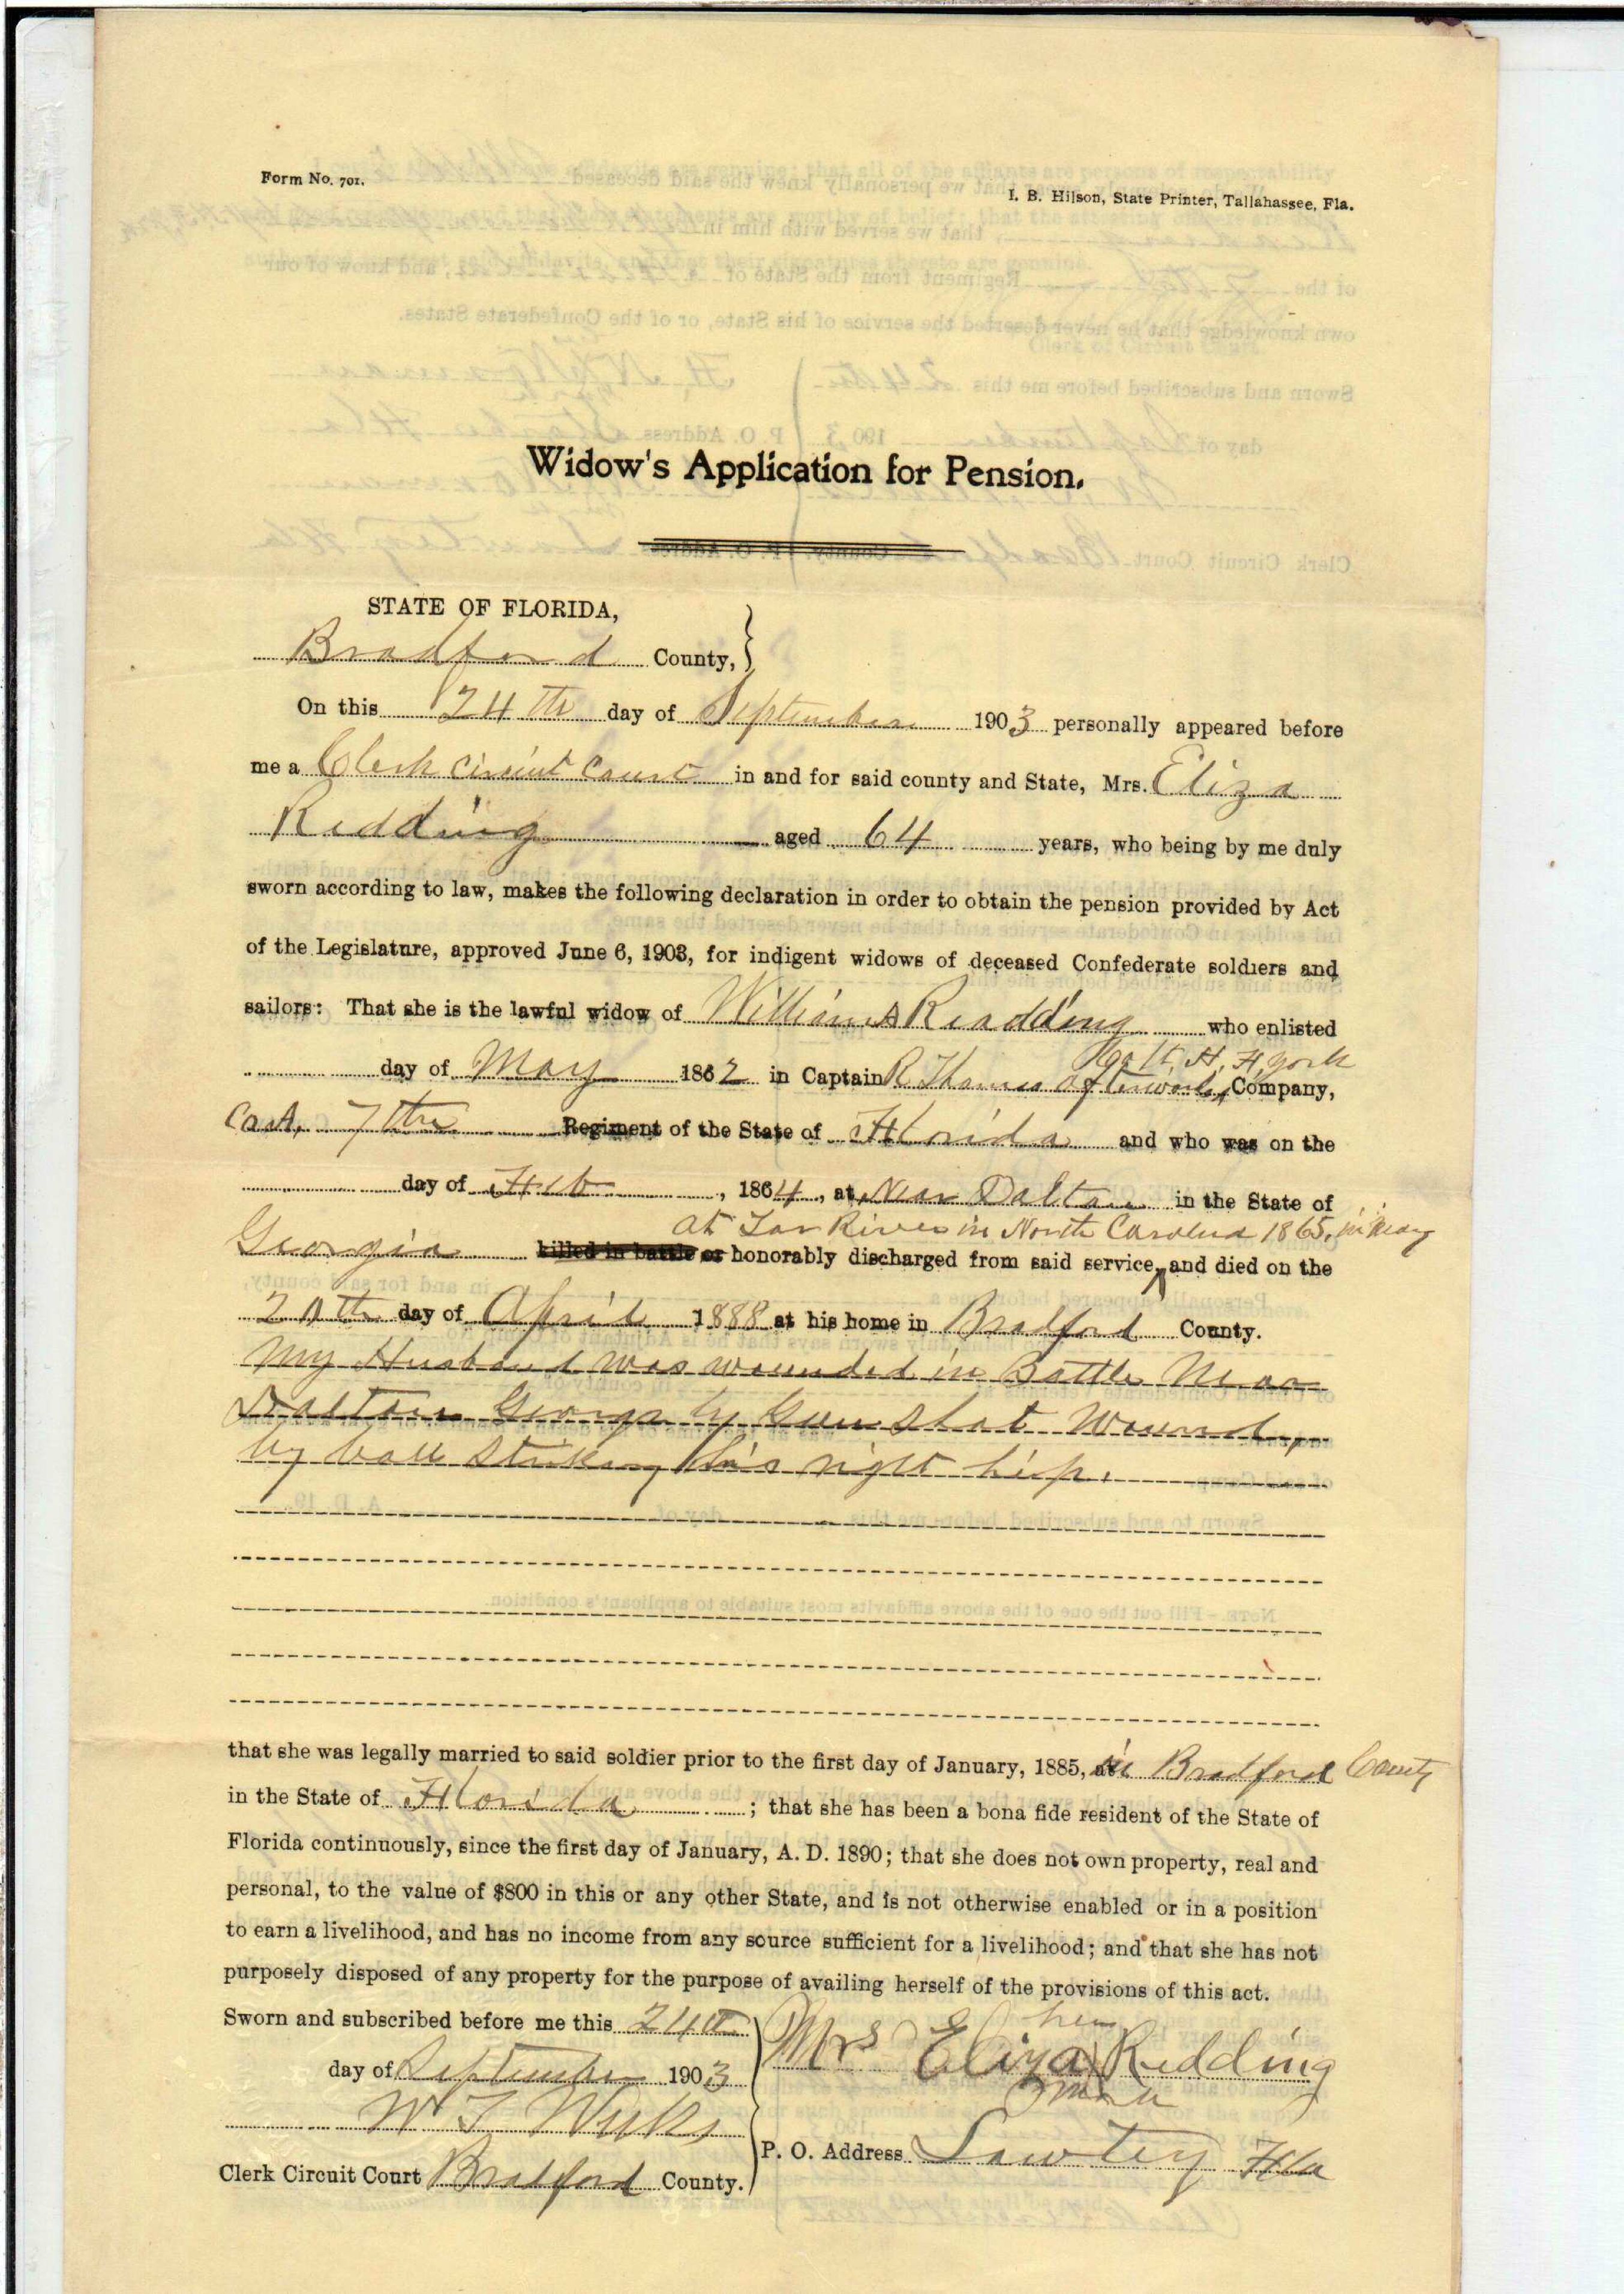 Form No. 701.
I. B. Hilson, State Printer, Tallahassee, Fla.
Widow's Application for Pension.
STATE OF FLORIDA,
Bradford County,
On this 24th day of September 1903 personally appeared before
me a Clerk Circuit Court in and for said county and State, Mrs. Eliza
Redding aged 64 years, who being by me duly
sworn according to law, makes the following declaration in order to obtain the pension provided by Act
of the Legislature, approved June 6, 1903, for indigent widows of deceased Confederate soldiers and
sailors: That she is the lawful widow of William Readding who enlisted
H. H. York
day of May 1862 in Captain R Thomas afterwards Company,
Co A, 7th Regiment of the State of Florida and who was on the
day of Feb, 1864, at Near Daltan in the State of
at Tar River in North Carolina 1865, in May
Georgia killed in battle or honorably discharged from said service, and died on the
day of April 1888 at his home in Bradford County.
My Husband was wounded in Battle Near
Daltan Georga by Gun Shot Wound,
by ball striking his right hip.
that she was legally married to said soldier prior to the first day of January, 1885, in Bradford County
in the State of Florida; that she has been a bona fide resident of the State of
Florida continuously, since the first day of January, A. D. 1890; that she does not own property, real and
personal, to the value of $800 in this or any other State, and is not otherwise enabled or in a position
to earn a livelihood, and has no income from any source sufficient for a livelihood; and that she has not
purposely disposed of any property for the purpose of availing herself of the provisions of this act.
Sworn and subscribed before me this 24th
day of September 1903
her
Mrs Eliza X Redding
mark
W T Weeks
P. O. Address Lawtey Fla
Clerk Circuit Court Bradford County.